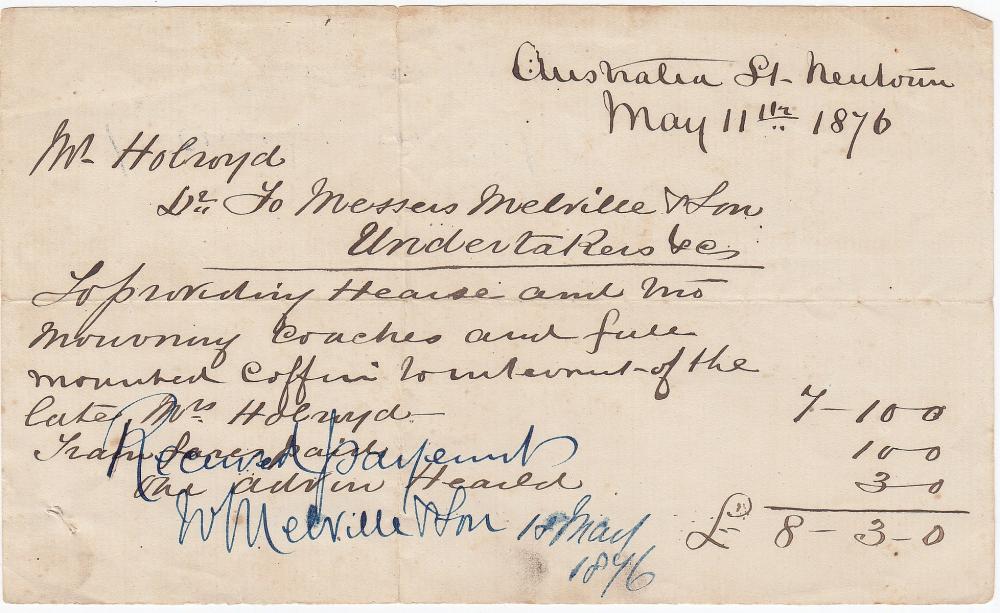 Australia St. Newtown
May 11th 1876
Mr Holroyd
Dr. To Messers Melville & Son
Undertakers &c
To providing Hearse and two
mourning Coaches and full
mounted Coffin to interment of the
late Mrs Holroyd 7-10-0
Train fares paid 10-0
one adv in Hearld 3-0
£ 8-3-0
Received payment
W Melville & Son 18 May
1876